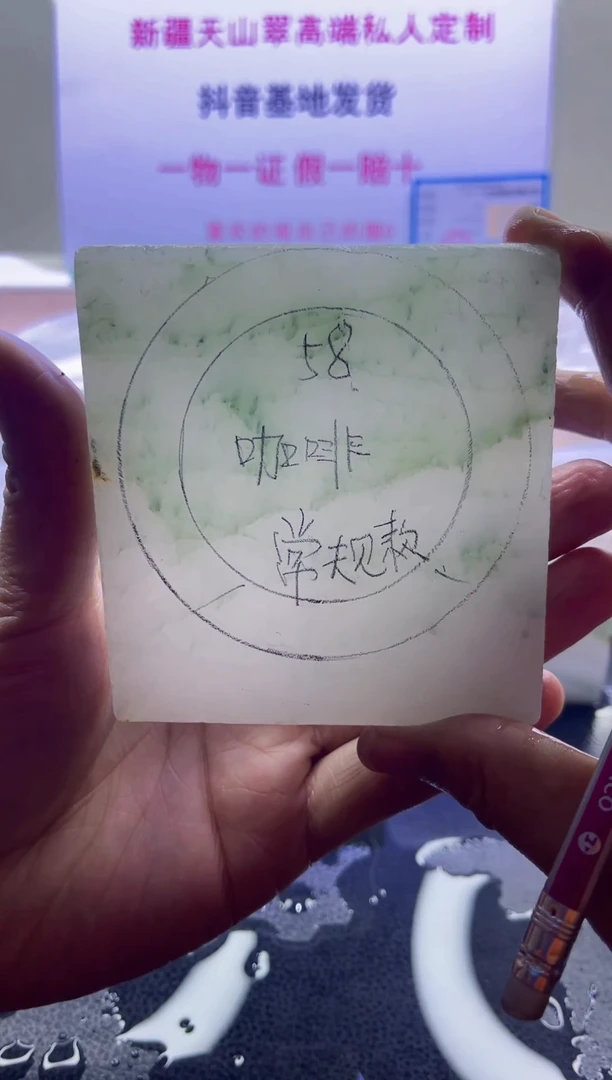 新疆天山翠高端私人定制
抖音基地发货
一物一证 假一赔十
58
咖啡
常规款
co